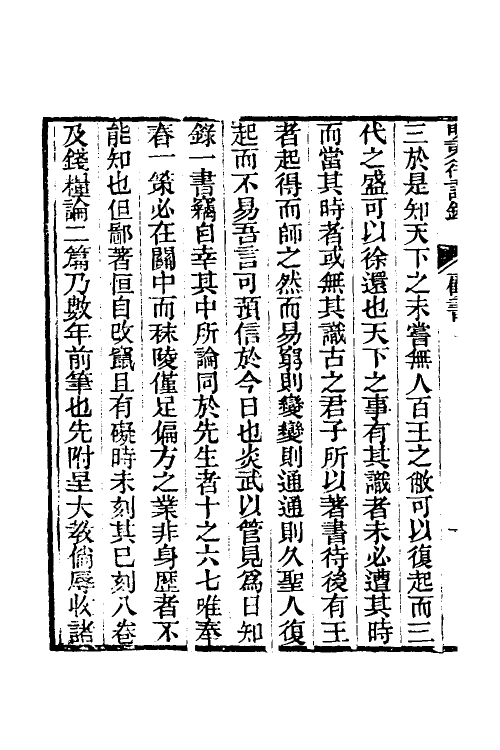 三於是知天下之未嘗無人百王之敝可以復起而三
代之盛可以徐還也天下之事有其識者未必遭其時
而當其時者或無其識古之君子所以著書待後有王
者起得而師之然而易窮則變變則通通則久聖人復
起而不易吾言可預信於今日也炎武以管見爲日知
錄一書竊自幸其中所論同於先生者十之六七唯奉
春一策必在關中而秣陵僅足偏方之業非身歷者不
能知也但鄙著恒自改竄且有礙時未刻其已刻八卷
及錢糧論二篇乃數年前筆也先附呈大教倘辱收諸